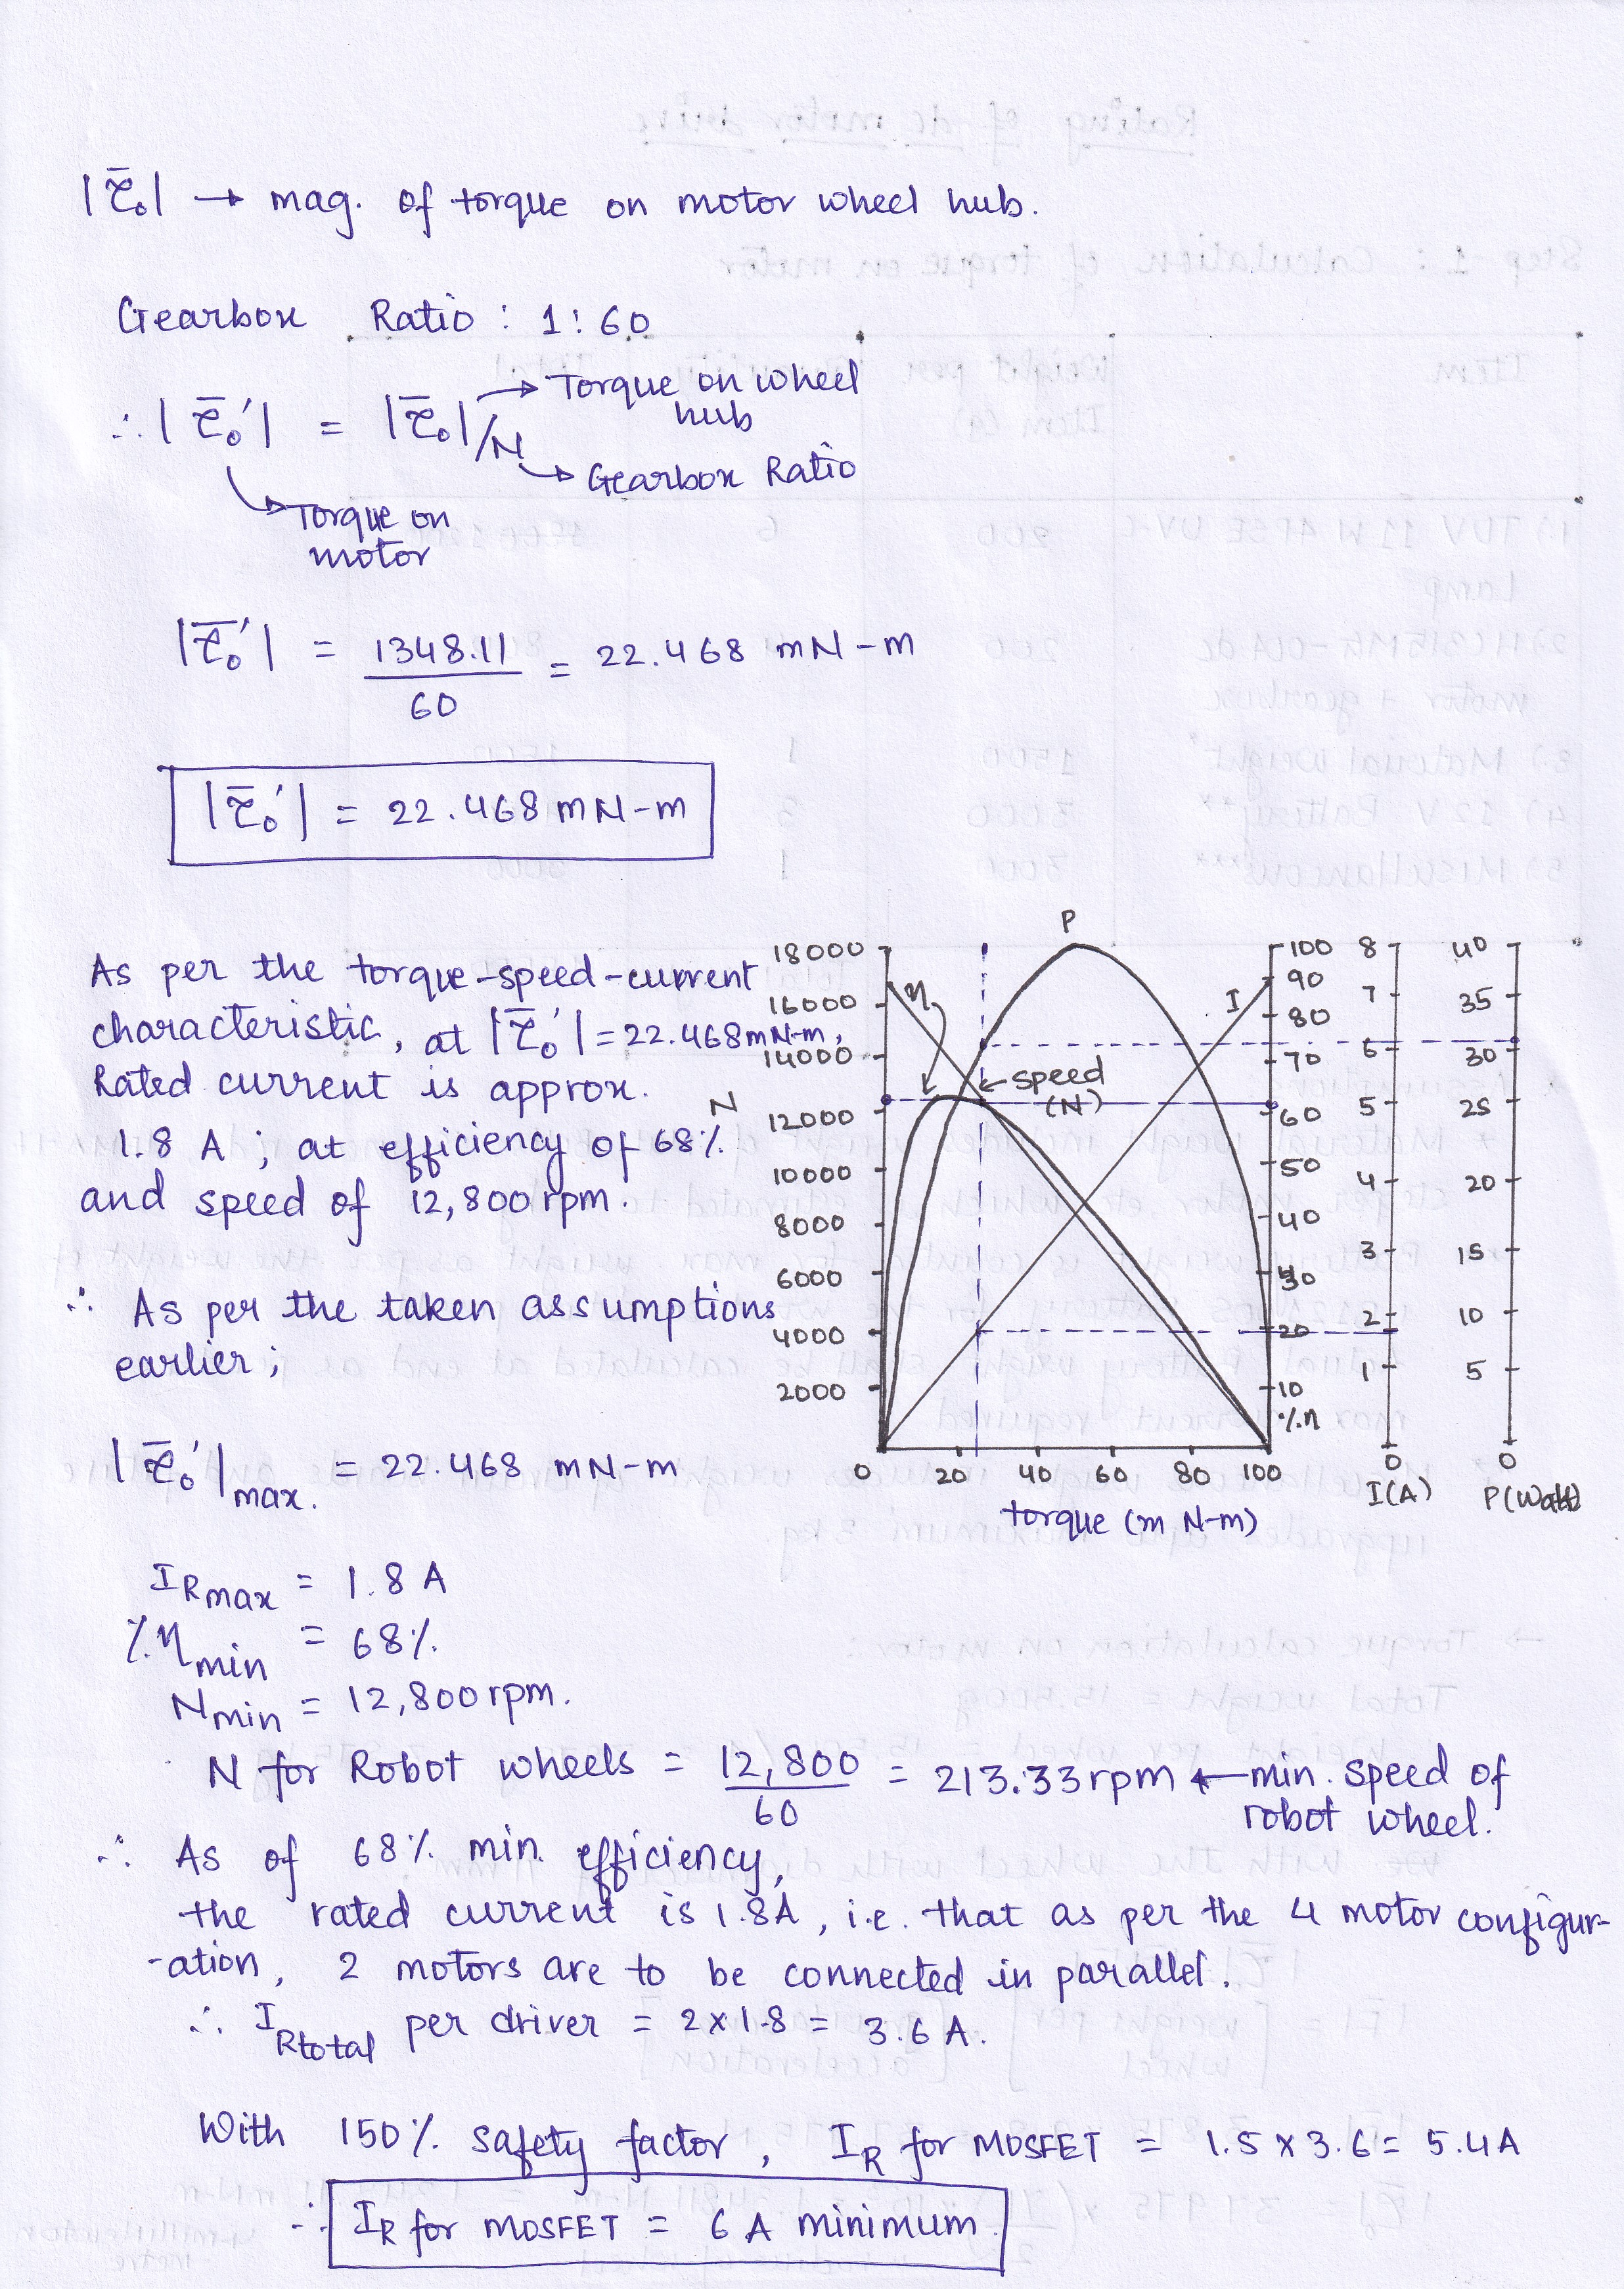 |τ̄₀| → mag. of torque on motor wheel hub.
Gearbox Ratio : 1:60
∴ |τ̄₀'| = |τ̄₀|/N
→ Torque on wheel hub
→ Gearbox Ratio
→ Torque on motor
|τ̄₀'| = 1348.11 / 60 = 22.468 mN-m
|τ̄₀'| = 22.468 mN-m
As per the torque-speed-current
characteristic, at |τ̄₀'| = 22.468 mN-m,
Rated current is approx.
1.8 A ; at efficiency of 68%
and speed of 12,800 rpm.
∴ As per the taken assumptions
earlier ;
|τ̄₀'|max. = 22.468 mN-m
P
18000
16000
14000
12000
10000
8000
6000
4000
2000
0
N
η
I
speed
(N)
100
90
80
70
60
50
40
30
20
10
%η
8
7
6
5
4
3
2
1
0
I(A)
40
35
30
25
20
15
10
5
0
P(Watt)
20 40 60 80 100
torque (m N-m)
I Rmax = 1.8 A
%η min = 68%
N min = 12,800 rpm.
N for Robot wheels = 12,800 / 60 = 213.33 rpm ← min. speed of
robot wheel.
∴ As of 68% min. efficiency,
the rated current is 1.8A, i.e. that as per the 4 motor configur-
-ation, 2 motors are to be connected in parallel.
∴ I Rtotal per driver = 2 x 1.8 = 3.6 A.
With 150% safety factor, I R for MOSFET = 1.5 x 3.6 = 5.4A
∴ I R for MOSFET = 6 A minimum.